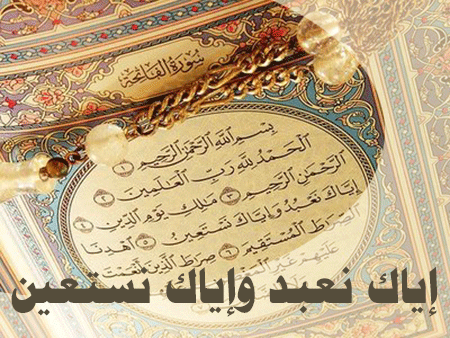 سُورَةُ الْفَاتِحَةِ
بِسْمِ اللَّهِ الرَّحْمَٰنِ الرَّحِيمِ ١
الْحَمْدُ لِلَّهِ رَبِّ الْعَٰلَمِينَ ٢
الرَّحْمَٰنِ الرَّحِيمِ ٣ مَٰلِكِ يَوْمِ الدِّينِ ٤
إِيَّاكَ نَعْبُدُ وَإِيَّاكَ نَسْتَعِينُ ٥ اهْدِنَا
الصِّرَٰطَ الْمُسْتَقِيمَ ٦ صِرَٰطَ الَّذِينَ أَنْعَمْتَ
عَلَيْهِمْ غَيْرِ
إياك نعبد وإياك نستعين